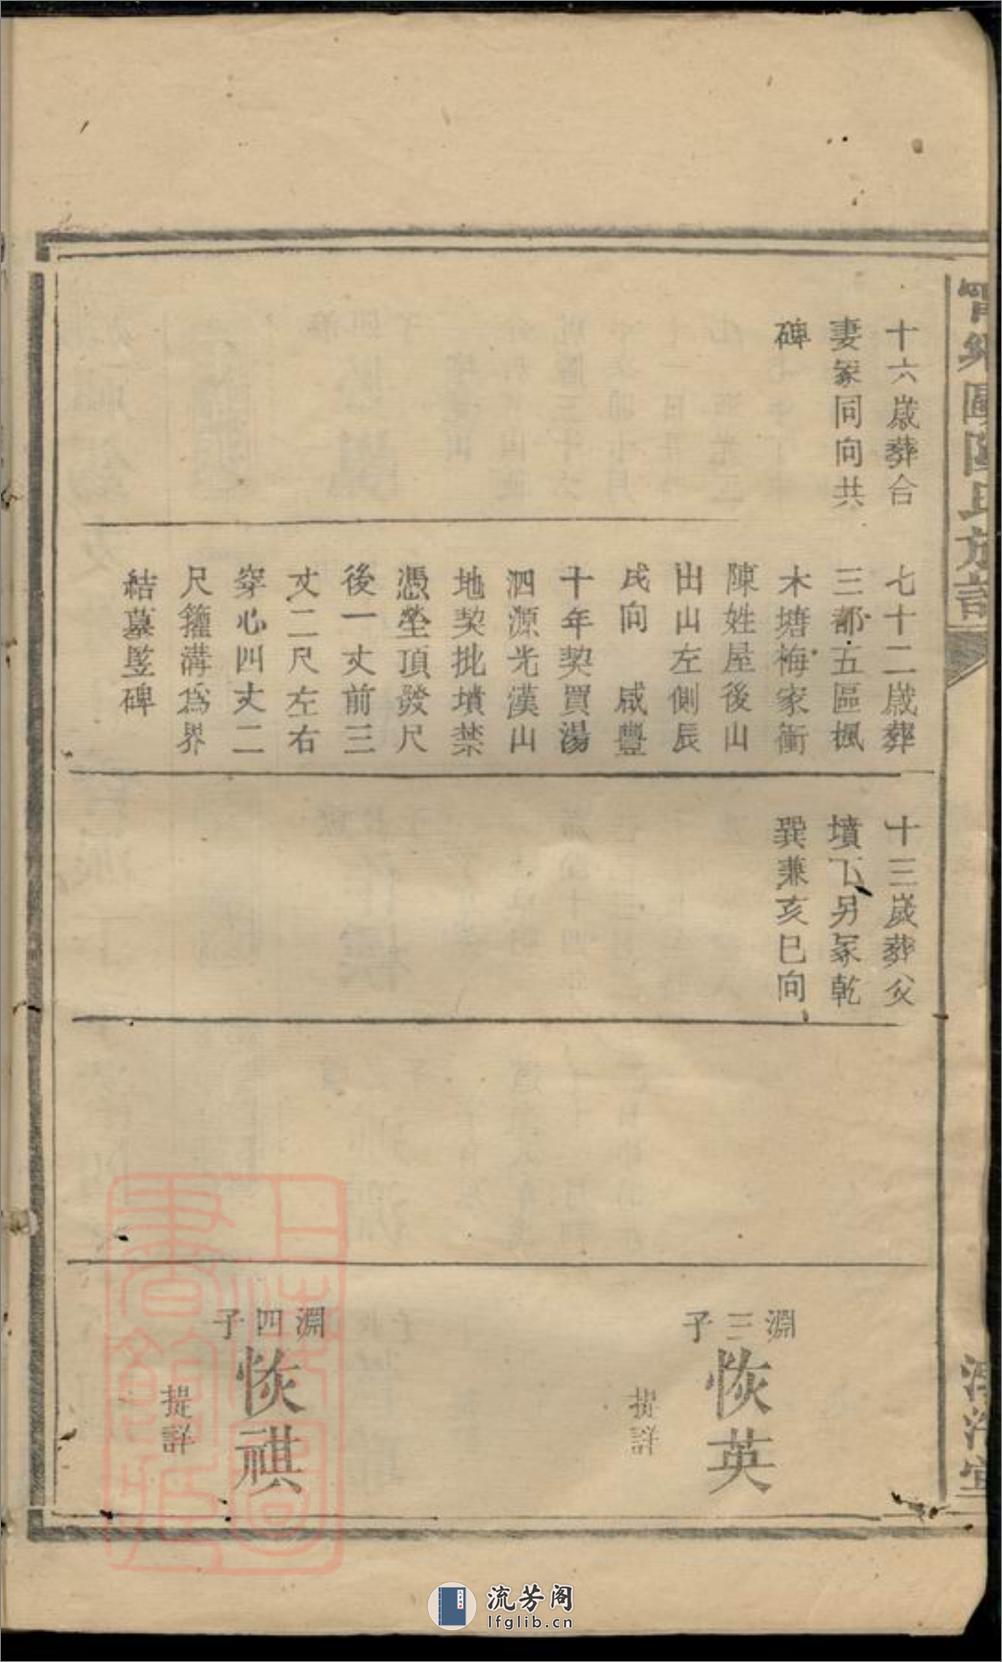 甯鄉歐陽氏族譜
十六歲葬合
妻冢同向共
碑
七十二歲葬
三都五區楓
木塘梅家衝
陳姓屋後山
出山左側辰
戌向 咸豐
十年契買湯
泗源光漢山
地契批墳禁
憑塋頂發尺
後一丈前三
丈二尺左右
穿心四丈二
尺籬溝爲界
結墓竪碑
十三歲葬父
墳下另冢乾
巽兼亥巳向
淵三子
恢英
提詳
淵四子
恢祺
提詳
上海圖書館藏
流芳阁
lfglib.cn